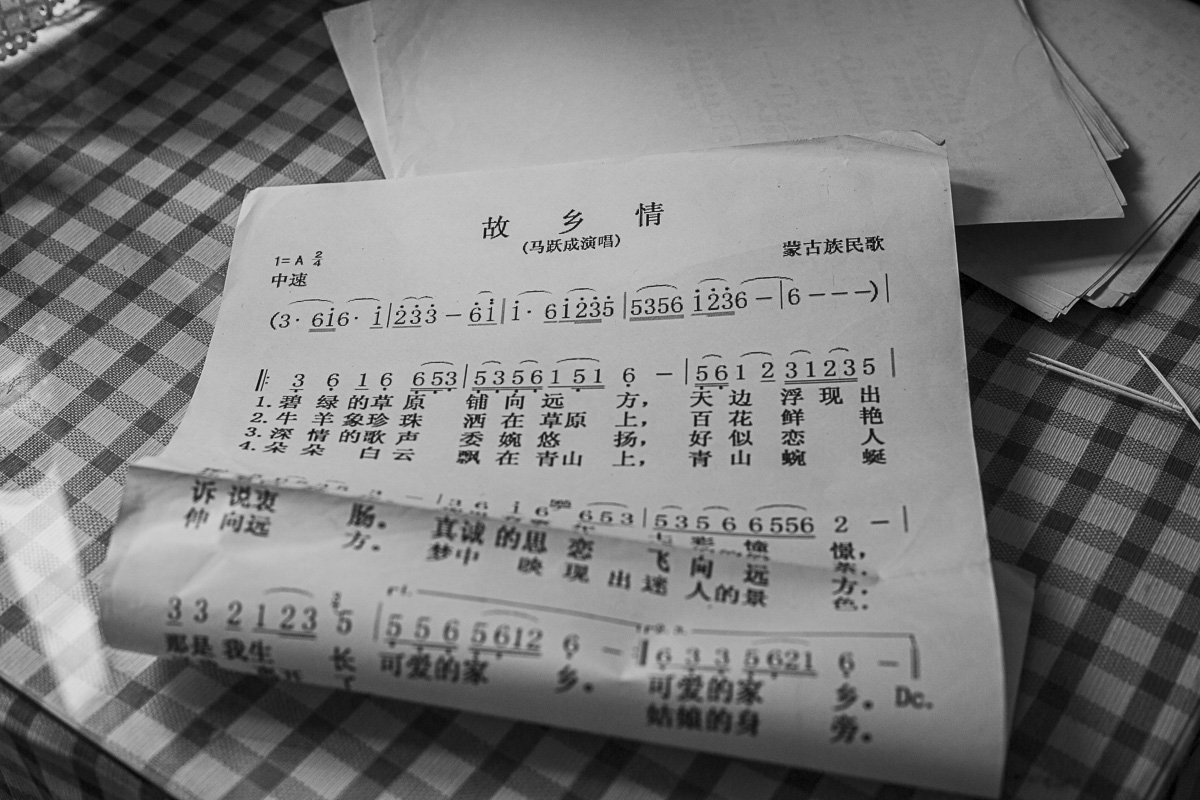 故乡情
(马跃成演唱)
1= A 2/4
蒙古族民歌
中速
(3· 6i6· i|233 - 6i|i· 61235|5356 1236 -|6---)|
‖: 3 6 1 6 653|53561 51 6 -|561 2 31235|
1. 碧绿的草原 铺向远方, 天边浮现出
2. 牛羊象珍珠 洒在草原上, 百花鲜艳
3. 深情的歌声 委婉悠扬, 好似恋人
4. 朵朵白云 飘在青山上, 青山蜿蜒
653|5356 6556 2 -|
憬,
诉说衷肠。 真诚的思恋 飞向远方.
伸向远方. 梦中映现出迷人的景色.
3 3 2 123 5|5 5 6 5612 6 -:‖6 3 3 5621 6 -‖
那是我生长 可爱的家乡。 可爱的家乡。 Dc.
姑娘的身旁。